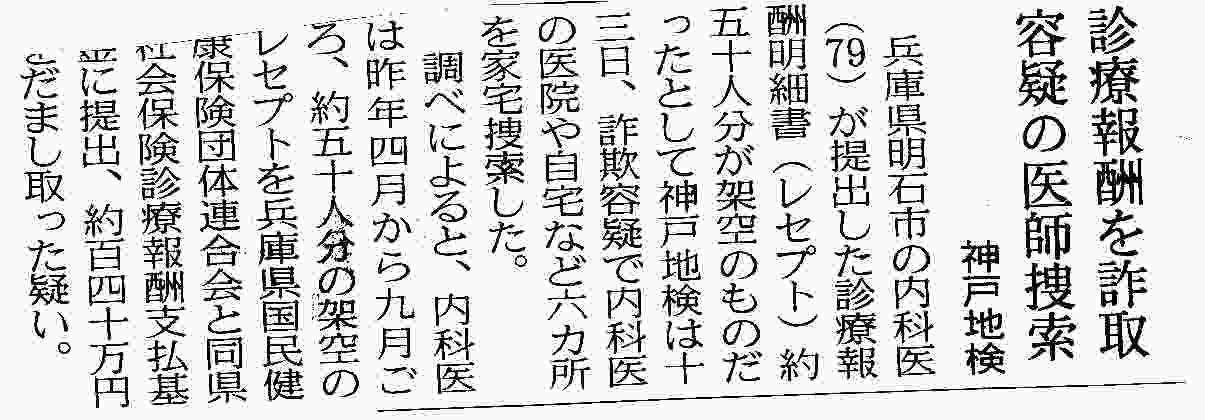 診療報酬を詐取
容疑の医師捜索
神戸地検
兵庫県明石市の内科医
(79)が提出した診療報
酬明細書(レセプト)約
五十人分が架空のものだ
ったとして神戸地検は十
三日、詐欺容疑で内科医
の医院や自宅など六カ所
を家宅捜索した。
調べによると、内科医
は昨年四月から九月ご
ろ、約五十人分の架空の
レセプトを兵庫県国民健
康保険団体連合会と同県
社会保険診療報酬支払基
金に提出、約百四十万円
をだまし取った疑い。